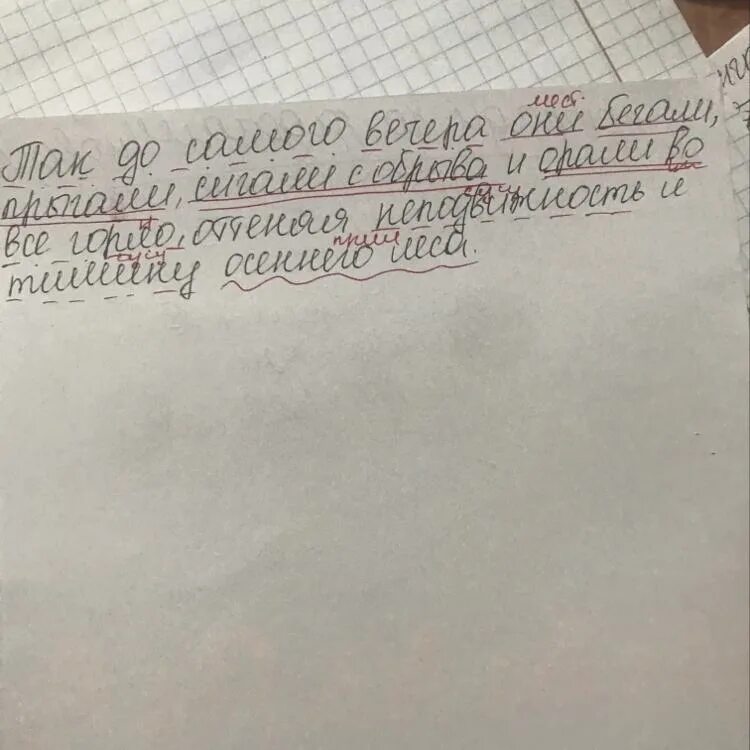 мест
Так до самого вечера они бегали,
прыгали, сигали с обрыва и орали во
все горло, оттеняя неподвижность и
сущ прил
тишину осеннего леса.